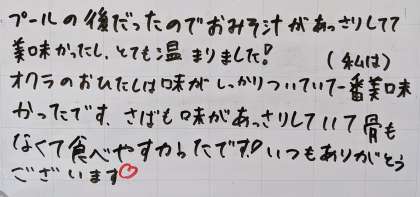 プールの後だったのでおみそ汁があっさりしてて
美味かったし、とても温まりました!
(私は)
オクラのおひたしは味がしっかりついていて一番美味
かったです。さばも味があっさりしていて骨も
なくて食べやすかったです!いつもありがとう
ございます♡